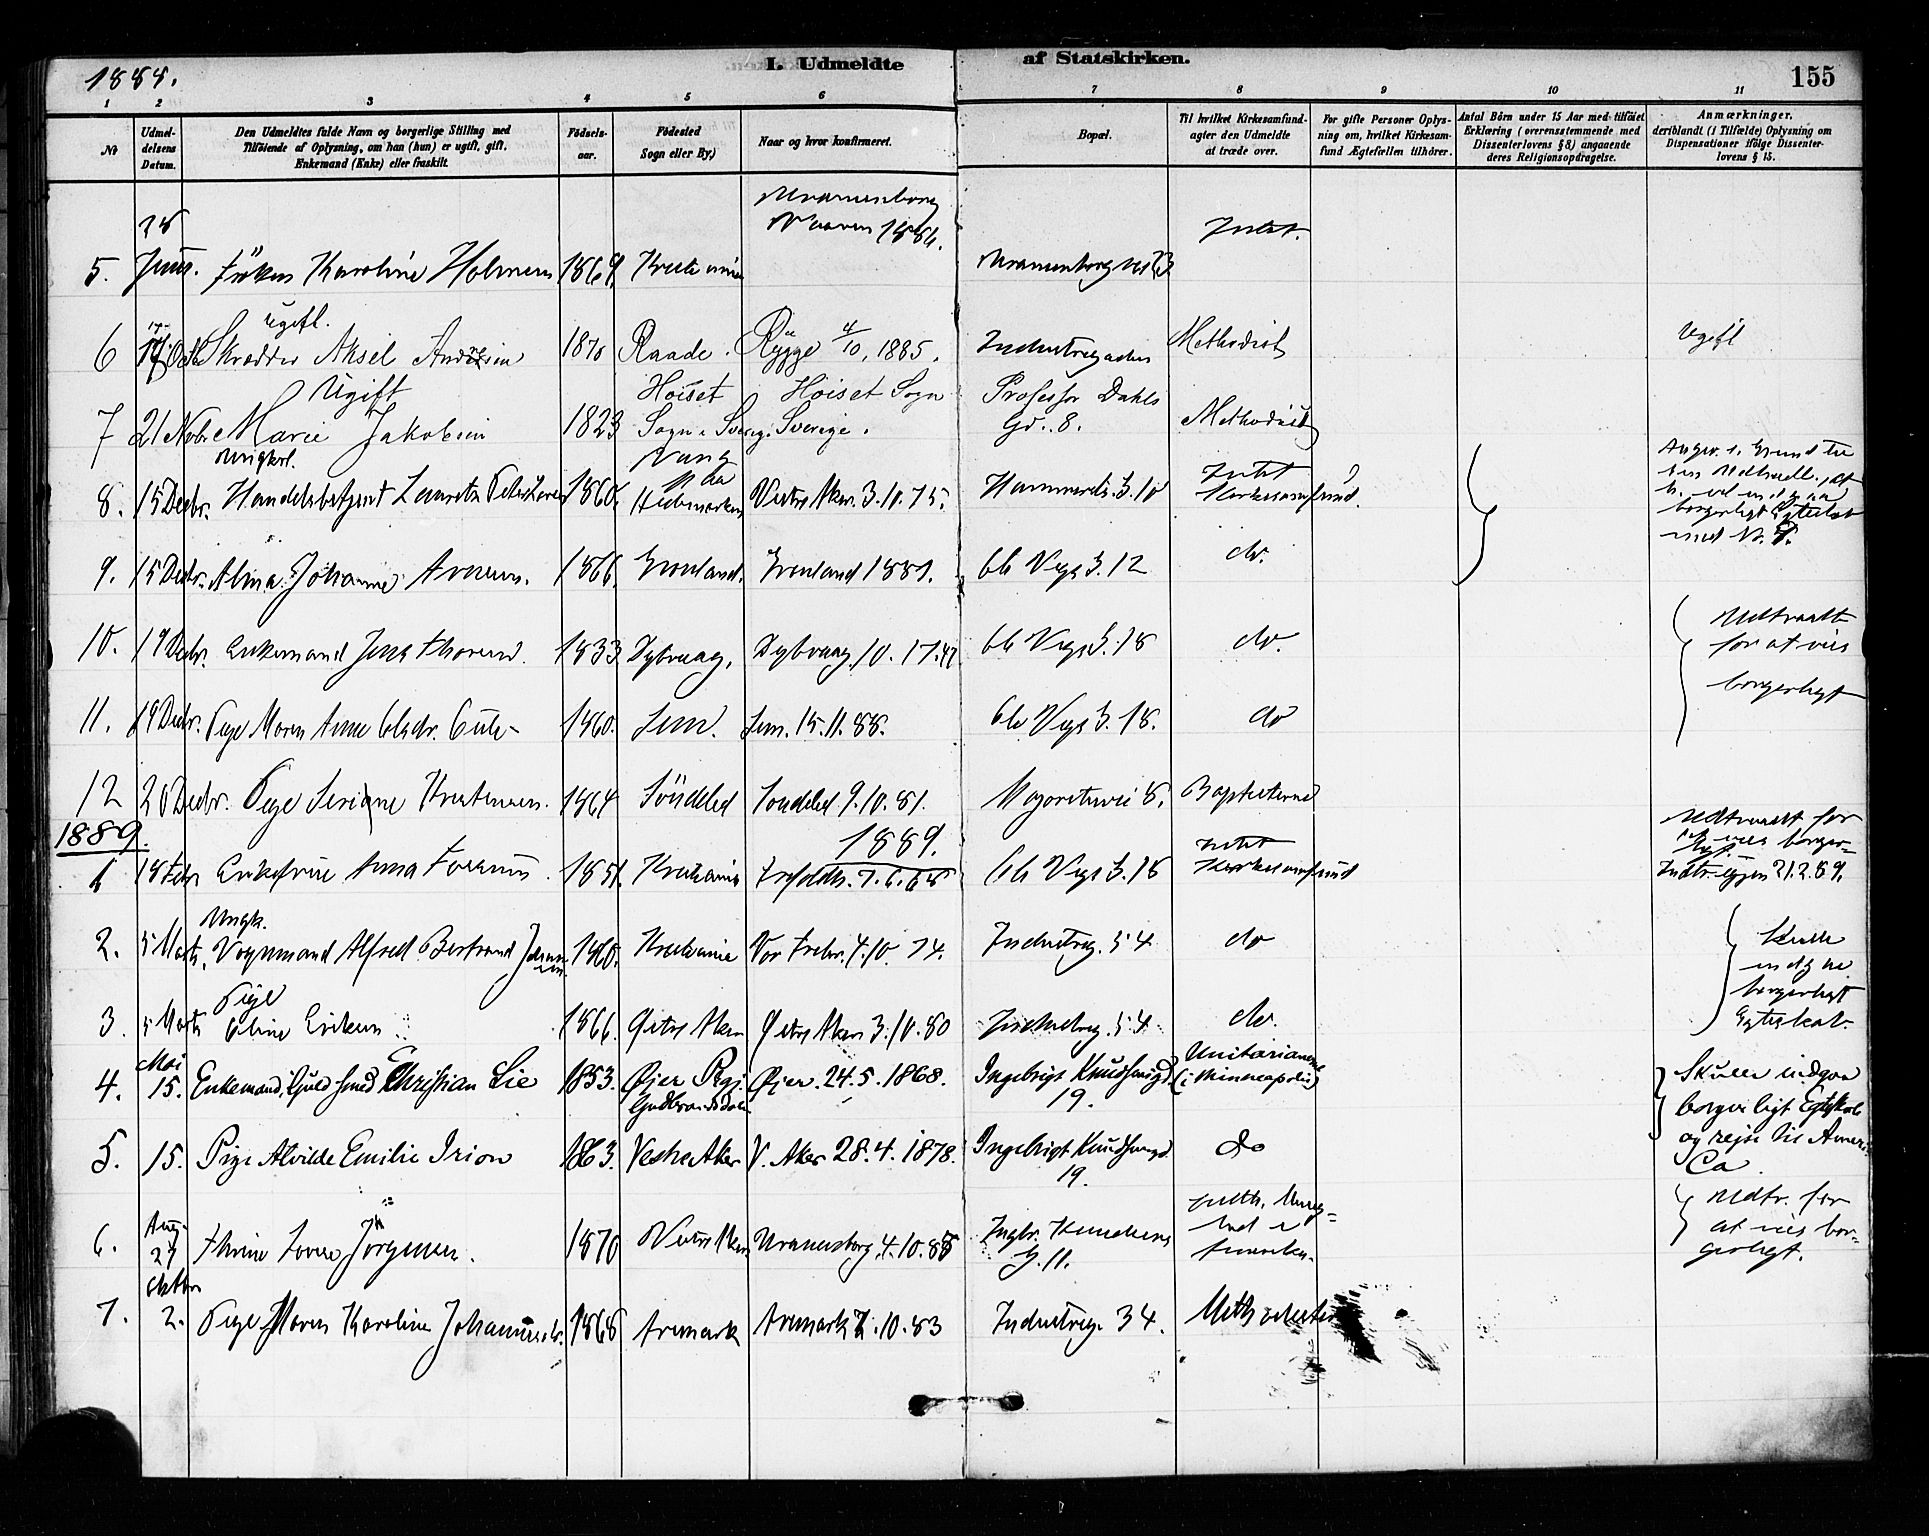 1888.
I. Udmeldte af Statskirken.
155
1 2 3 4 5 6 7 8 9 10 11
No
Udmel-
delsens
Datum.
Den Udmeldtes fulde Navn og borgerlige Stilling med
Tilföiende af Oplysning, om han (hun) er ugift, gift,
Enkemand (Enke) eller fraskilt.
Födsels-
aar.
Födested
Sogn eller By,)
Naar og hvor konfirmeret.
Bopæl.
Til hvilket Kirkesamfund-
agter den Udmeldte
at træde over.
For gifte Personer Oplys-
ning om, hvilket Kirkesam-
fund Ægtefællen tilhörer.
Antal Börn under 15 Aar med tilföiet
Erklæring (overensstemmende med
Dissenterlovens § 8) angaaende
deres Religionsopdragelse.
Anmærkninger.
deriblandt (i Tilfælde) Oplysning om
Dispensationer ifölge Dissenter-
lovens § 15.
Uranienborg
1884.
Intet.
5. Fröken Karoline Holmsen 1869 Kristiania Uranienborg
Ugift.
6 17 Oct Skrædder Aksel Andersen 1870 Raade. Rygge 4/10, 1885. Industrigaden Methodist Ugift
Ugift Höiset Höiset Sogn Professor Dahls
7 21 Nobr Marie Jakobsen 1823 Sogn i Sverig. Sverige. Gd. 8. Methodist
Ungkarl. Vang
paa Intet
8. 15 Decbr. Handelsbetjent Lauritz 1860 Hedemarken Vestre Aker. 3.10.75. Kirkesamfund.
borgerligt Egteskab
med No. 9.
9. 15 Decbr. Alma Johanne Arnesen. 1866. Grönland. Grönland 1881. 12 do.
10. 19 Decbr. Enkemand Jens Thorsen 1833 Dybvaag. Dybvaag 10.17.47 18 do.
Udtraadt
for at vies
borgerligt
11. 19 Decbr. Pige Maren Anne 1860. Sem. Sem. 15.11.88. 18. do
12 20 Decbr. Pige Seriane Kristensen. 1864 Söndeled Söndeled 9.10.81. 8. Baptisterne
1889. 1889.
Udtraadt for
at vies borger-
ligt.
21.2.89.
1 18 Febr Enkefrue Anna 1851. Kristiania 18 Intet
Kirkesamfund
Ungk.
2. 5 Marts. Vognmand Alfred Bertrand Jensen 1860. Kristiania Vor Frelser. 4.10.74. Industrig. 54 do
Skulle
indgaa
borgerligt
Egteskab.
Pige
3. 5 Marts Oline Eriksen 1866 Östre Aker Östre Aker 3.10.80 Industrig. 54. do.
Mai
4. 15. Enkemand, Guldsmed Christian Lie 1853. Øjer Prgj. Øjer. 24.5.1868. Ingebrigt Knudsensgd. Unitarianerne
Gudbrandsdalen 19. (i Minneapolis)
Skulle indgaa
borgerligt Egteskab
og rejse til Ameri-
Ca.
5. 15. Pige Alvilde Emilie Irion 1863. Vestre Aker V. Aker 28.4.1878. Ingebrigt Knudsensgd. do
19.
Aug.
6. 27 Thrine Lovise Jörgensen. 1870 Vestre Aker Uranienborg. 4.10.85 Ingbr. Knudsens
g. 11. Amerika.
Udtr. for
at vies bor-
gerligt.
Oktbr
7. 2. Pige Maren Karoline Johannesdr. 1868 Aremark Aremark 7.10.83 Industrig. 34. Methodister